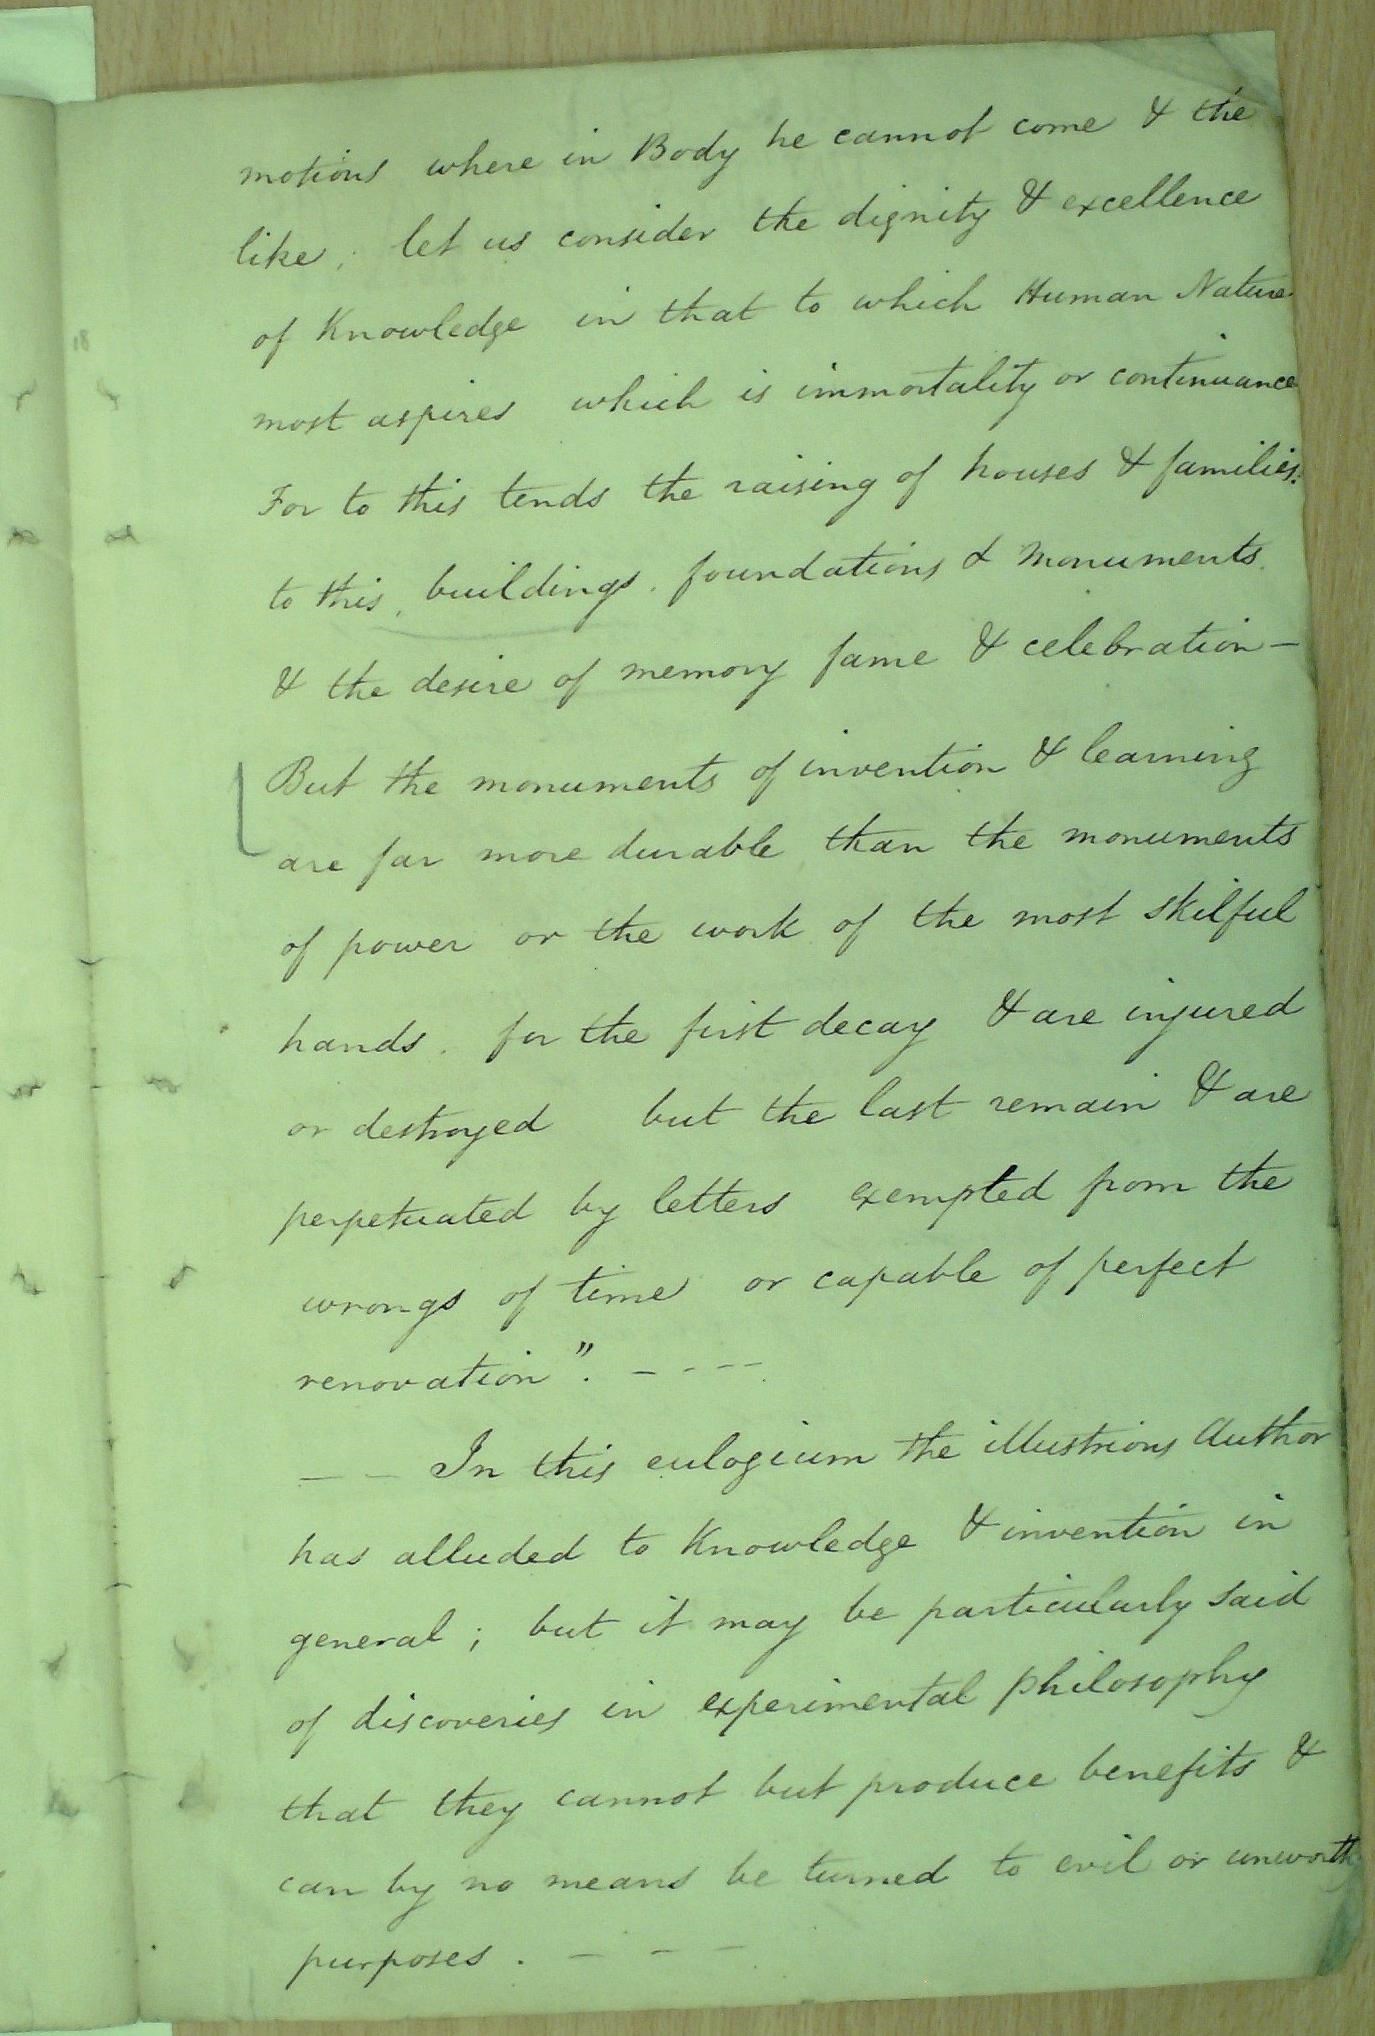 motions where in Body he cannot come & the
like; let us consider the dignity & excellence
of Knowledge in that to which Human Nature
most aspires which is immortality or continuance
For to this tends the raising of houses & families:
to this, buildings, foundations & monuments.
& the desire of memory fame & celebration —
But the monuments of invention & learning
are far more durable than the monuments
of power or the work of the most skilful
hands. for the first decay & are injured
or destroyed but the last remain & are
perpetuated by letters exempted from the
wrongs of time or capable of perfect
renovation". - - - -
- - In this eulogium the illustrious Author
has alluded to Knowledge & invention in
general; but it may be particularly said
of discoveries in experimental philosophy
that they cannot but produce benefits &
can by no means be turned to evil or unworthy
purposes. - - -